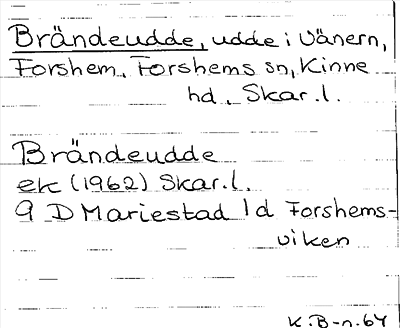 Brändeudde, udde i Vänern,
Forshem, Forshems sn, Kinne
hd, Skar.l.
Brändeudde
ek (1962) Skar.l.
9 D Mariestad 1d Forshems-
viken
K.B-n.64